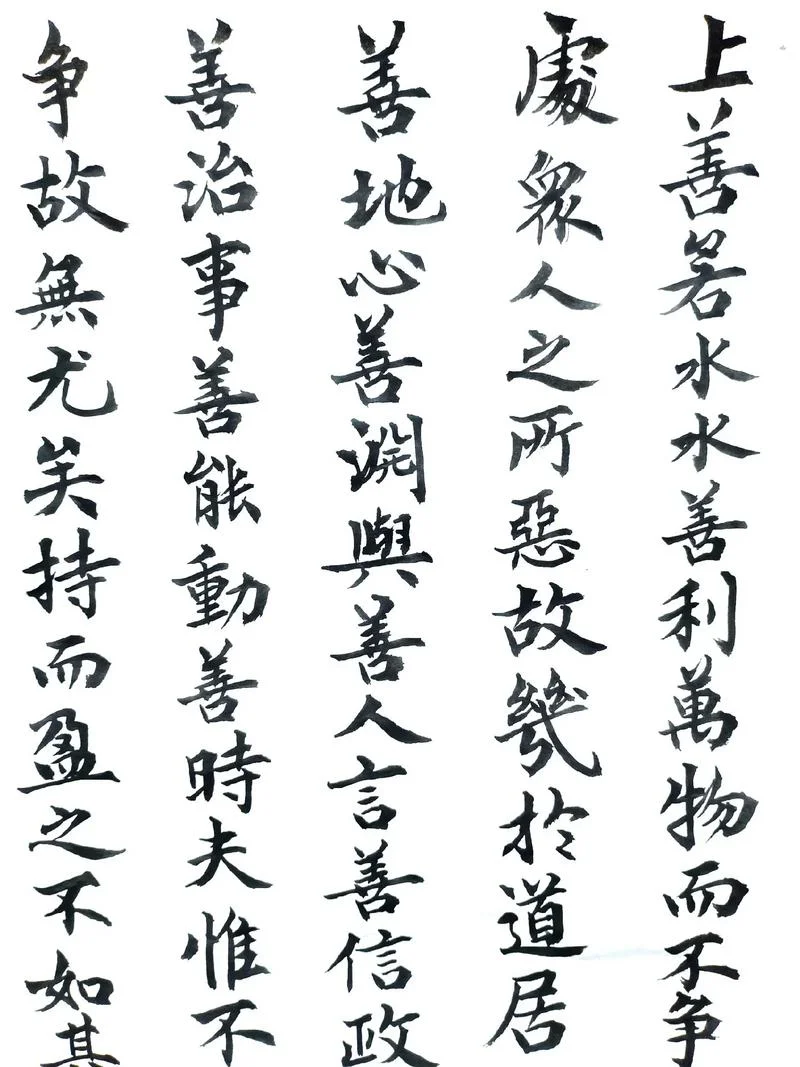 上善若水水善利萬物而不争
處眾人之所惡故幾於道居
善地心善淵與善人言善信政
善治事善能動善時夫惟不
争故無尤矣持而盈之不如其